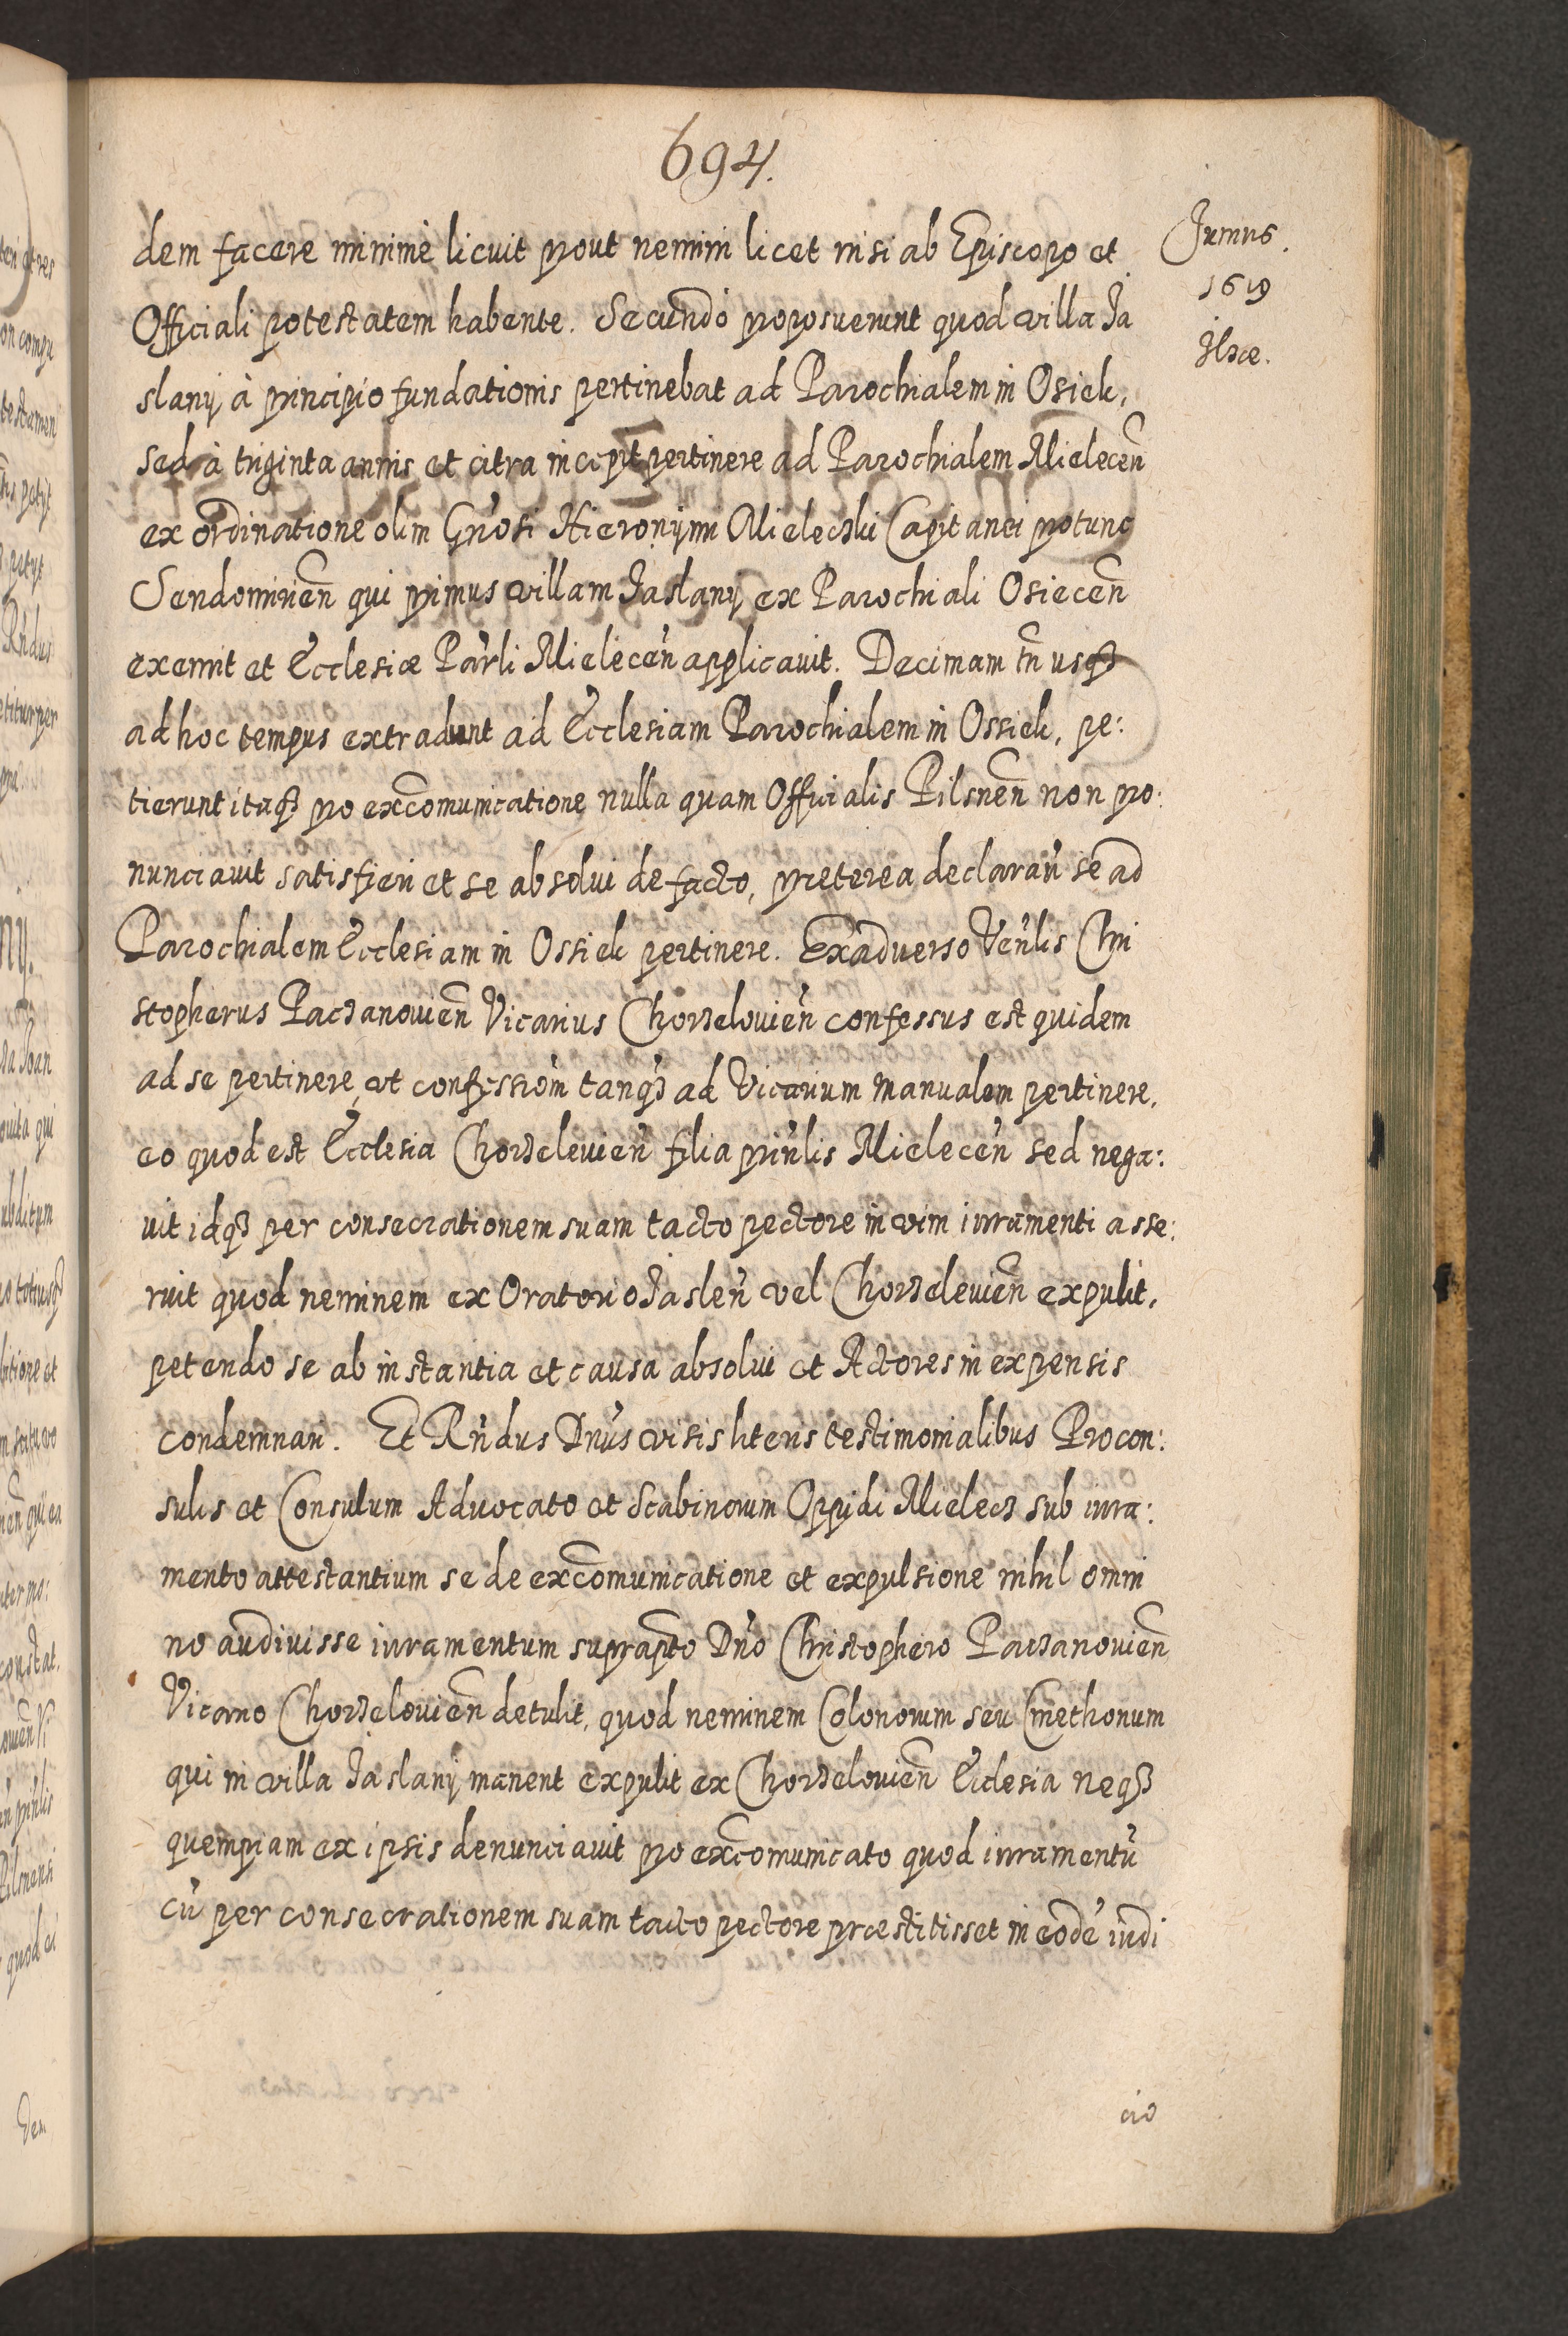 694.
dem facere minimè licuit prout nemini licet nisi ab Episcopo et
Officiali potestatem habente. Secundò proposuerunt quod villa Ja
slany à principio fundationis pertinebat ad Parochialem in Osiek,
sed à triginta annis et citra incepit pertinere ad Parochialem Mielecen̄
ex ordinatione olim Gn̄osi Hieronymi Mieleczki Capitanei protunc
Sendomirien̄ qui primus villam Jaslany ex Parochiali Osiecen̄
exemit et Ecclesiæ Par̄li Mielecen̄ applicauit. Decimam tn̄ usqȝ
ad hoc tempus extradunt ad Ecclesiam Parochialem in Ossiek, pe:
tierunt itaqȝ pro excōmunicatione nulla quam Officialis Pilsnen̄ non pro:
nunciauit satisfieri et se absolui de facto, præterea declararn̄ se ad
Parochialem Ecclesiam in Ossiek pertinere. Ex aduerso Ven̄lis Chri
stopherus Paczanouien̄ Vicarius Chorzelouien̄ confessus est quidem
ad se pertinere et confession̄m tanqȝ ad Vicarium manualem pertinere,
eo quod est Ecclesia Chorzelouien̄ filia prin̄lis Mielecen̄ sed nega:
uit idqȝ per consecrationem suam tacto pectore in vim iuramenti asse:
ruit quod neminem ex Oratorio Jaslen̄ vel Chorzeleuien̄ expulit,
petendo se ab instantia et causa absolui et Actores in expensis
condemnari. Et Rn̄dus Dn̄us visis literis testimonialibus Procon:
sulis et Consulum Aduocato et Scabinorum Oppidi Mielecz sub iura:
mento attestantium se de excōmunicatione et expulsione nihil omni
no audiuisse iuramentum suprapto Dn̄o Christophero Paczanouien̄
Vicario Chorzelouien̄ detulit, quod neminem Colonorum seu Cmethonum
qui in villa Jaslany manent expulit ex Chorzelouien̄ Ecclesia neqȝ
quempiam ex ipsis denunciauit pro excōmunicato quod iuramentū
cū per consecrationem suam tacto pectore præstitisset in eodē iudi
cio
Junius.
1619
Ilzæ.